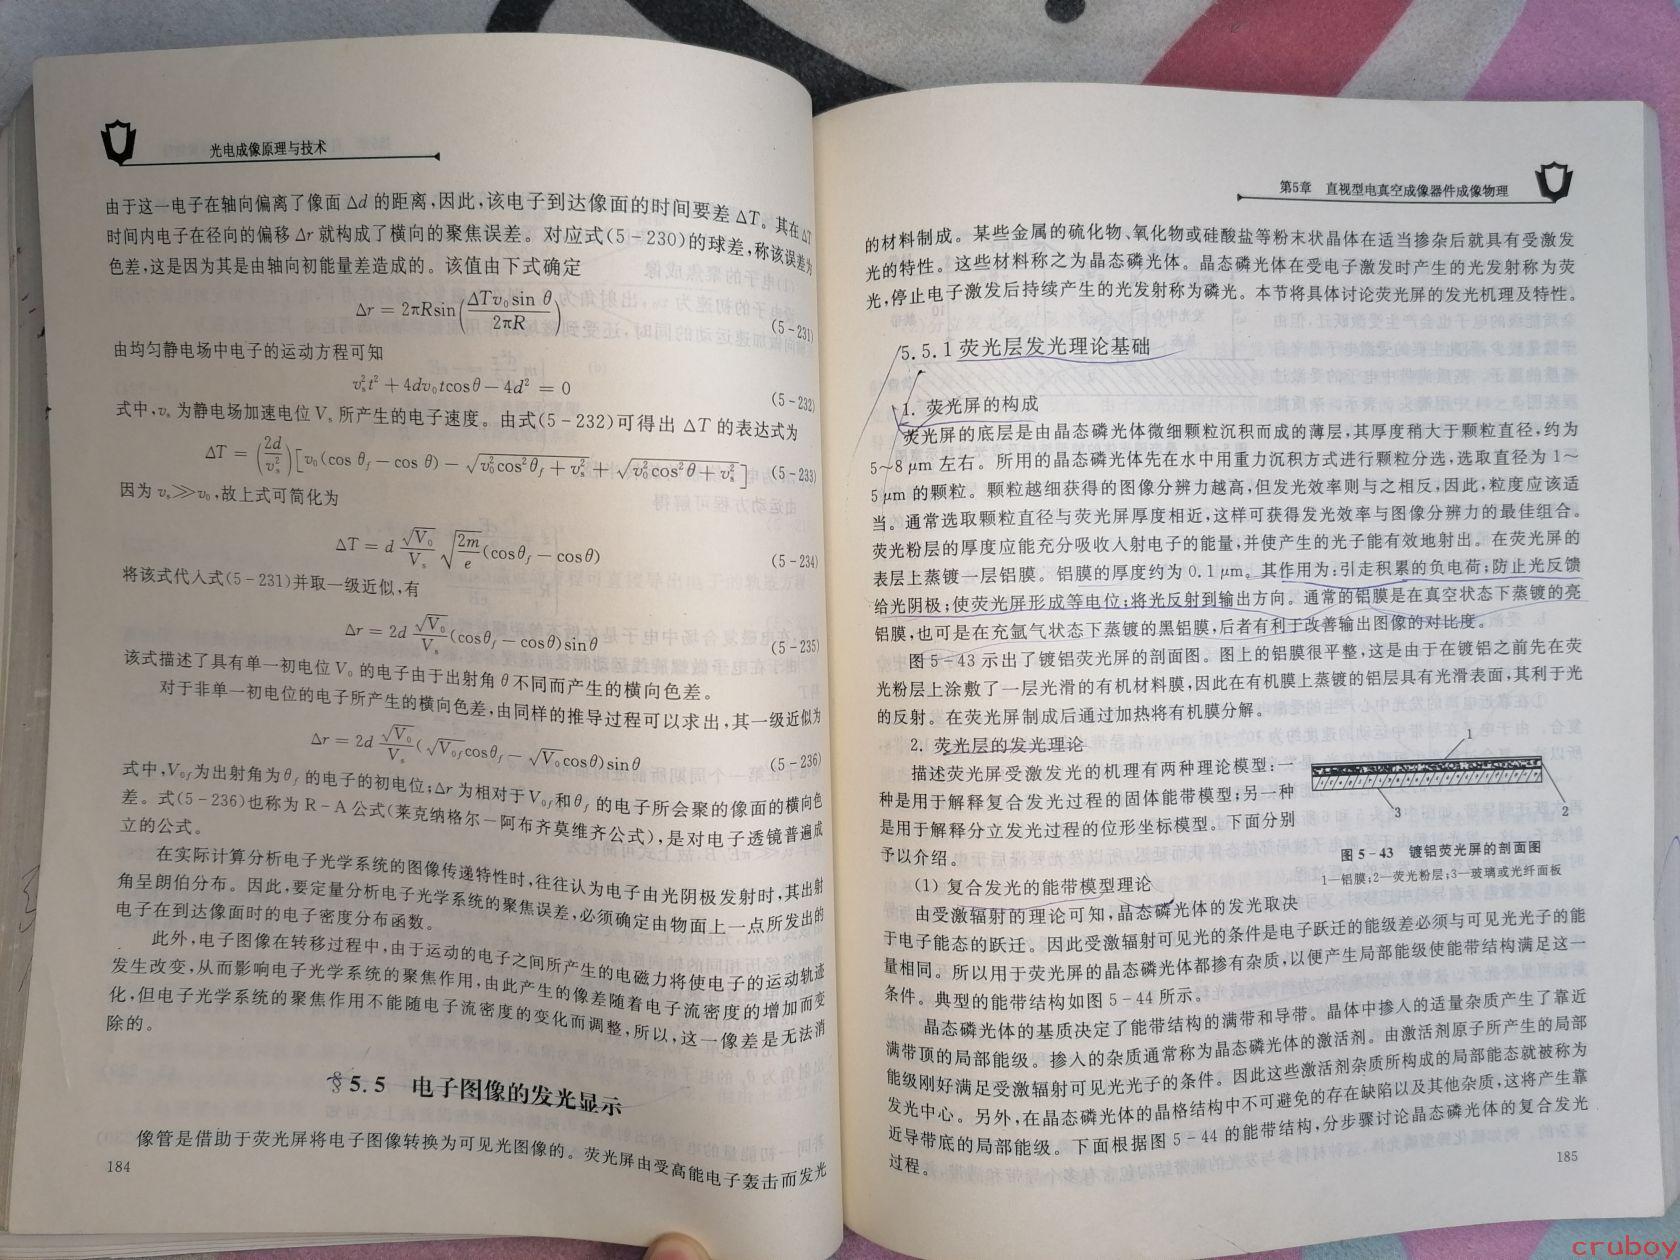 光电成像原理与技术
由于这一电子在轴向偏离了像面 Δd 的距离,因此,该电子到达像面的时间要差 ΔT。其在 ΔT
时间内电子在径向的偏移 Δr 就构成了横向的聚焦误差。对应式(5-230)的球差,称该误差为
色差,这是因为其是由轴向初能量差造成的。该值由下式确定
Δr = 2πRsin(ΔTv₀sin θ / 2πR) (5-231)
由均匀静电场中电子的运动方程可知
vₛ²t² + 4dv₀tcosθ - 4d² = 0 (5-232)
式中,vₛ 为静电场加速电位 Vₛ 所产生的电子速度。由式(5-232)可得出 ΔT 的表达式为
ΔT = (2d/vₛ²)[v₀(cos θf - cos θ) - √(v₀²cos²θf + vₛ²) + √(v₀²cos²θ + vₛ²)] (5-233)
因为 vₛ≫v₀,故上式可简化为
ΔT = d (√V₀/Vₛ) √(2m/e) (cosθf - cosθ) (5-234)
将该式代入式(5-231)并取一级近似,有
Δr = 2d (√V₀/Vₛ)(cosθf - cosθ)sinθ (5-235)
该式描述了具有单一初电位 V₀ 的电子由于出射角 θ 不同而产生的横向色差。
对于非单一初电位的电子所产生的横向色差,由同样的推导过程可以求出,其一级近似为
Δr = 2d (√V₀/Vₛ)(√V₀f cosθf - √V₀ cosθ)sinθ (5-236)
式中,V₀f 为出射角为 θf 的电子的初电位;Δr 为相对于 V₀f 和 θf 的电子所会聚的像面的横向色
差。式(5-236)也称为 R-A 公式(莱克纳格尔-阿布齐莫维齐公式),是对电子透镜普遍成
立的公式。
在实际计算分析电子光学系统的图像传递特性时,往往认为电子由光阴极发射时,其出射
角呈朗伯分布。因此,要定量分析电子光学系统的聚焦误差,必须确定由物面上一点所发出的
电子在到达像面时的电子密度分布函数。
此外,电子图像在转移过程中,由于运动的电子之间所产生的电磁力将使电子的运动轨迹
发生改变,从而影响电子光学系统的聚焦作用,由此产生的像差随着电子流密度的增加而变
化,但电子光学系统的聚焦作用不能随电子流密度的变化而调整,所以,这一像差是无法消
除的。
§5.5 电子图像的发光显示
像管是借助于荧光屏将电子图像转换为可见光图像的。荧光屏由受高能电子轰击而发光
184
第5章 直视型电真空成像器件成像物理
的材料制成。某些金属的硫化物、氧化物或硅酸盐等粉末状晶体在适当掺杂后就具有受激发
光的特性。这些材料称之为晶态磷光体。晶态磷光体在受电子激发时产生的光发射称为荧
光,停止电子激发后持续产生的光发射称为磷光。本节将具体讨论荧光屏的发光机理及特性。
5.5.1 荧光层发光理论基础
1. 荧光屏的构成
荧光屏的底层是由晶态磷光体微细颗粒沉积而成的薄层,其厚度稍大于颗粒直径,约为
5~8 μm 左右。所用的晶态磷光体先在水中用重力沉积方式进行颗粒分选,选取直径为 1~
5 μm 的颗粒。颗粒越细获得的图像分辨力越高,但发光效率则与之相反,因此,粒度应该适
当。通常选取颗粒直径与荧光屏厚度相近,这样可获得发光效率与图像分辨力的最佳组合。
荧光粉层的厚度应能充分吸收入射电子的能量,并使产生的光子能有效地射出。在荧光屏的
表层上蒸镀一层铝膜。铝膜的厚度约为 0.1 μm。其作用为:引走积累的负电荷;防止光反馈
给光阴极;使荧光屏形成等电位;将光反射到输出方向。通常的铝膜是在真空状态下蒸镀的亮
铝膜,也可是在充氩气状态下蒸镀的黑铝膜,后者有利于改善输出图像的对比度。
图 5-43 示出了镀铝荧光屏的剖面图。图上的铝膜很平整,这是由于在镀铝之前先在荧
光粉层上涂敷了一层光滑的有机材料膜,因此在有机膜上蒸镀的铝层具有光滑表面,其利于光
的反射。在荧光屏制成后通过加热将有机膜分解。
2. 荧光层的发光理论
描述荧光屏受激发光的机理有两种理论模型:一
种是用于解释复合发光过程的固体能带模型;另一种
是用于解释分立发光过程的位形坐标模型。下面分别
予以介绍。
1
3
2
图 5-43 镀铝荧光屏的剖面图
1—铝膜;2—荧光粉层;3—玻璃或光纤面板
(1) 复合发光的能带模型理论
由受激辐射的理论可知,晶态磷光体的发光取决
于电子能态的跃迁。因此受激辐射可见光的条件是电子跃迁的能级差必须与可见光光子的能
量相同。所以用于荧光屏的晶态磷光体都掺有杂质,以便产生局部能级使能带结构满足这一
条件。典型的能带结构如图 5-44 所示。
晶态磷光体的基质决定了能带结构的满带和导带。晶体中掺入的适量杂质产生了靠近
满带顶的局部能级。掺入的杂质通常称为晶态磷光体的激活剂。由激活剂原子所产生的局部
能级刚好满足受激辐射可见光光子的条件。因此这些激活剂杂质所构成的局部能态就被称为
发光中心。另外,在晶态磷光体的晶格结构中不可避免的存在缺陷以及其他杂质,这将产生靠
近导带底的局部能级。下面根据图 5-44 的能带结构,分步骤讨论晶态磷光体的复合发光
过程。
185
cruboy